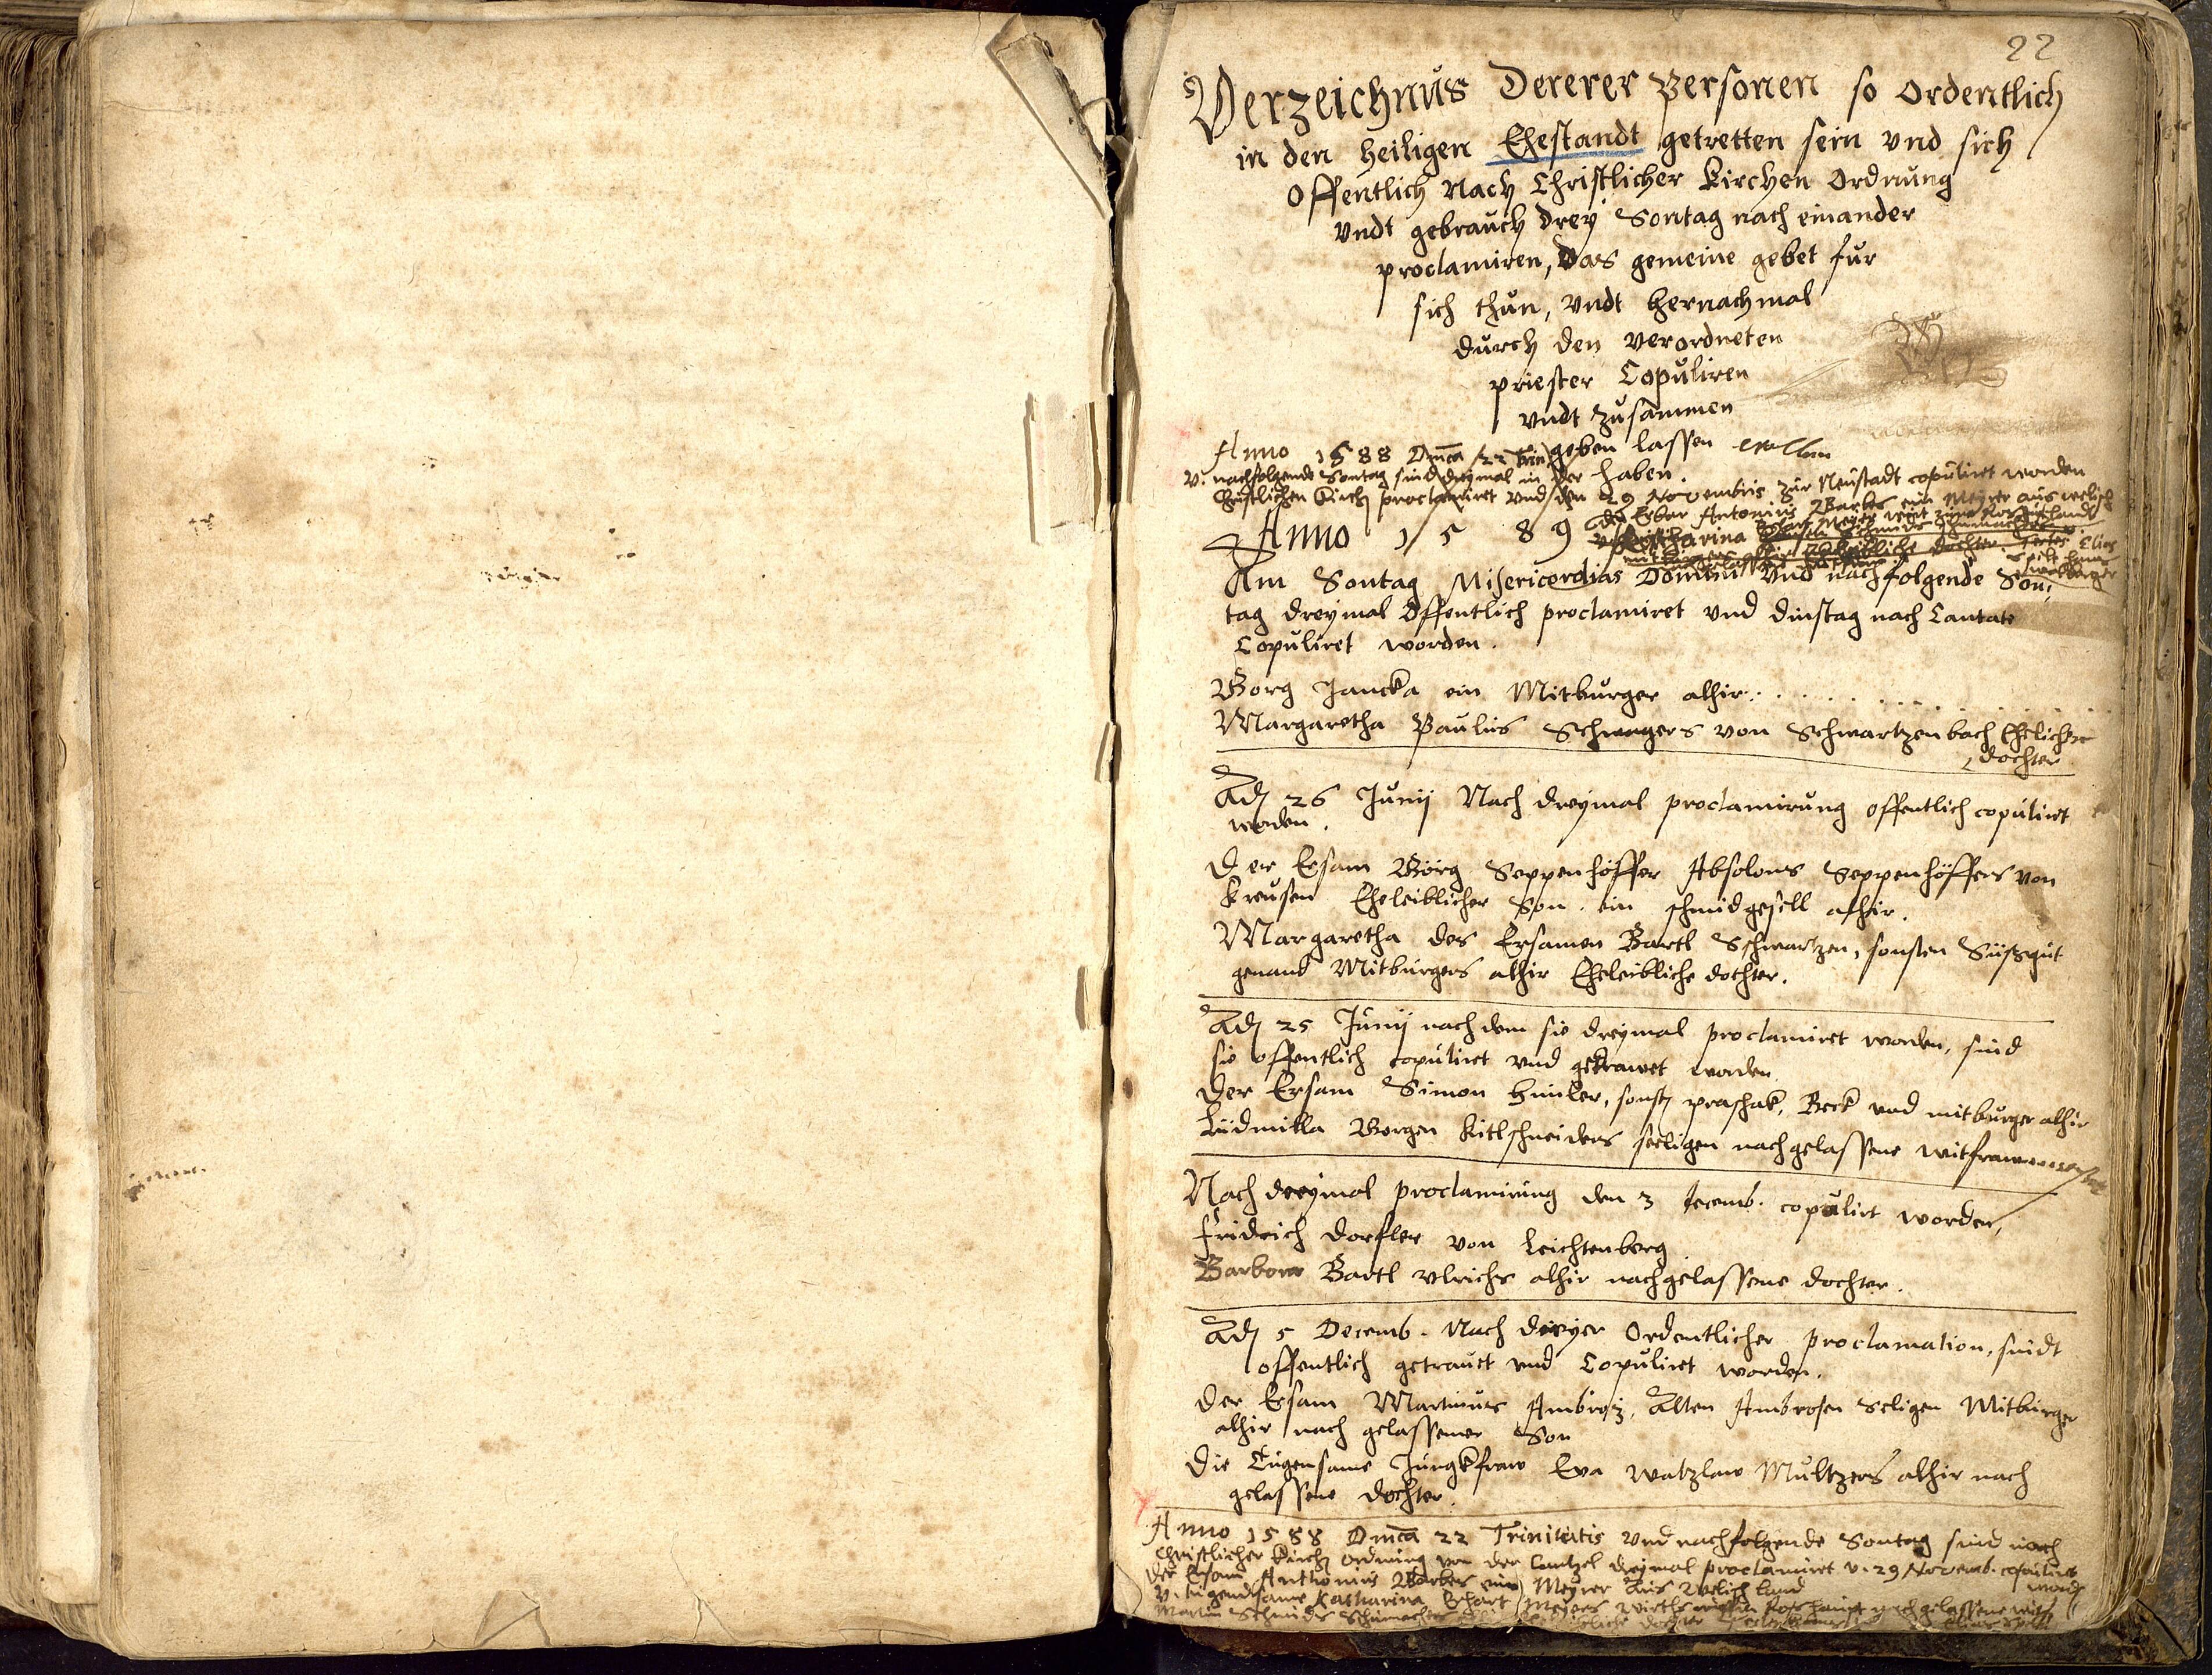 22
Verzeichnus Dererer Personen so Ordentlich
in den heiligen Ehestandt getretten sein vnd sich
Offentlich Nach Christlicher Kirchen Ordnung
vndt gebrauch drey Sontag nach einander
proclamiren, Das gemeine gebet fur
sich thun, vndt hernachmal
durch den verordneten
priester Copuliren
vndt zusammen
geben lassen wollen
haben.
Anno 1588 Dnica 22 Trin
v. nachfolgende Sontag sind dreymal in der
Christlichen Kirch proclamiret vnd den 29 Novembris zur Neustadt copuliret worden
der Erbar Antonius Barbes ein Meyrer aus welsch
Anno 1589
Am Sontag Misericordias Domini vnd nachfolgende Son¬
tag dreymal Offentlich proclamiret vnd dinstag nach Cantate
Copuliret worden.
Görg Jancka ein Mitburger alhir
Margaretha Paulus Schwagers von Schwartzenbach Ehelicher
dochter
Adj 26 Junij Nach dreymal proclamirung offentlich copuliret
worden.
Der Ersam Görg Seppenhöffer Absolons Seppenhöffers von
Kreusen Eheleiblicher Son. ein schmidgesell alhir.
Margaretha des Ersamen Bartl Schwartzen, sonsten Süsgut
genand Mitburgers alhir Eheleibliche dochter.
Adj 25 Junij nach dem sie dreymal proclamiret worden, sind
sie offentlich copuliret vnd getrawet worden
Der Ersam Simon himler, sonst praschak, Beck vnd mitburger alhir
Ludmilla Görgen kitlschneiders seeligen nachgelassene witfraw
Nach dreymal proclamirung den 3 Decemb. copulirt worden,
Fridrich dorfler von Leichtenberg
Barbara Bartl vlrichs alhir nachgelassene dochter.
Adj 5 Decemb. Nach dreyer Ordentlicher proclamation, sindt
offentlich getrauet vnd Copuliret worden.
Der Ersam Martinus Ambros, Alten Ambrosen Seligen Mitburger
alhir nach gelassener Son
Die Tugensame Jungkfraw Eva watzlaw Multzers alhir nach
gelassene dochter.
Anno 1588 Dnica 22 Trinitatis vnd nachfolgende Sontag sind nach
Christlicher Kirch Ordnung von der Cantzel dreymal proclamiret v. 29 Novemb. copuliret
word
Der Ersam Anthonius Barbes ein Meyrer aus Welschland
v. tugendsame Katharina Erhart Meyers nachgelassene
Martin Schmids Schumachers dochter